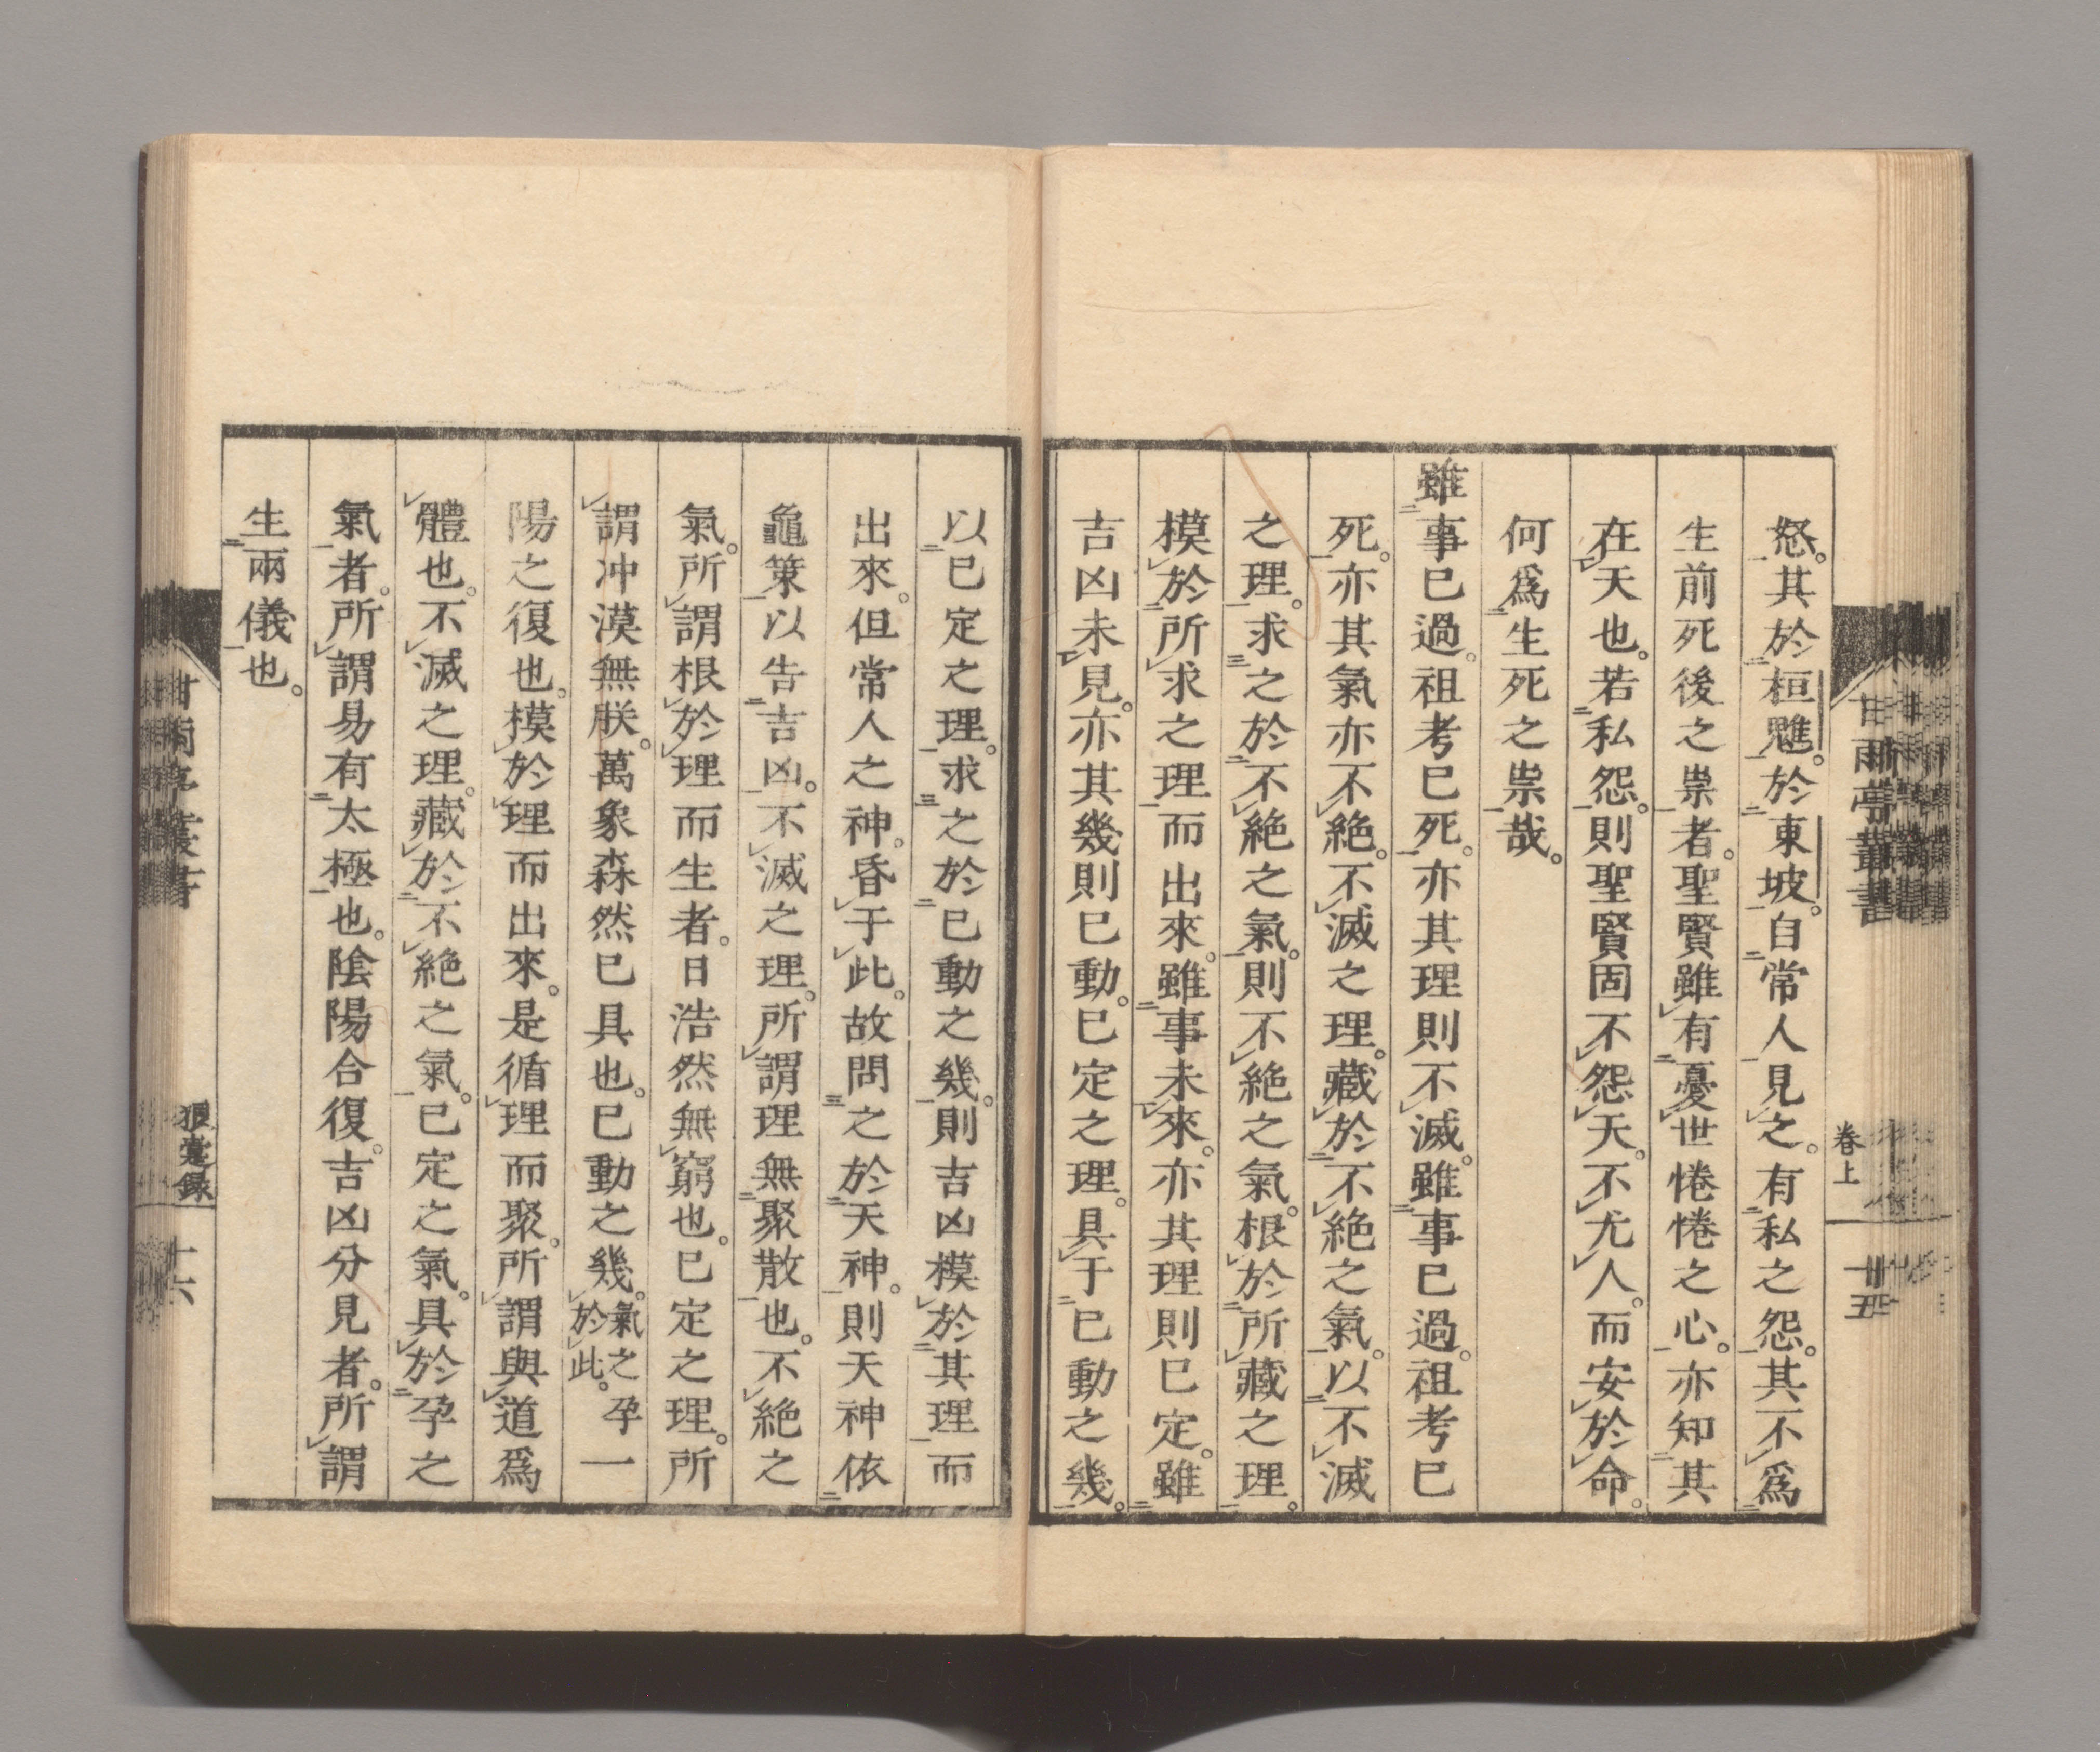 怒。其於桓魋。於東坡。自常人見之。有私之怨。其不爲
生前死後之祟者。聖賢雖有憂世惓惓之心。亦知其
在天也。若私怨。則聖賢固不怨天。不尤人。而安於命。
何爲生死之祟哉。
雖事已過。祖考已死。亦其理則不滅。雖事已過。祖考已
死。亦其氣亦不絶。不滅之理。藏於不絶之氣。以不滅
之理。求之於不絶之氣。則不絶之氣。根於所藏之理。
模於所求之理而出來。雖事未來。亦其理則已定。雖
吉凶未見。亦其幾則已動。已定之理。具于已動之幾。
甘雨亭叢書
卷上
以已定之理。求之於已動之幾。則吉凶模於其理而
出來。但常人之神。昏于此。故問之於天神。則天神依
龜筴以告吉凶。不滅之理。所謂理無聚散也。不絶之
氣。所謂根於理而生者。日浩然無窮也。已定之理。所
謂冲漠無朕。萬象森然已具也。已動之幾。氣之孕於此。一
陽之復也。模於理而出來。是循理而聚。所謂與道爲
體也。不滅之理。藏於不絶之氣。已定之氣。具於孕之
氣者。所謂易有太極也。陰陽合復。吉凶分見者。所謂
生兩儀也。
甘雨亭叢書
狼疐録
十六